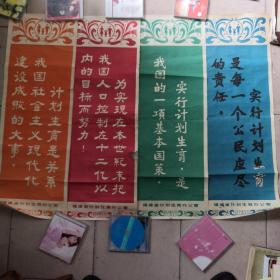 计划生育是关系
我国社会主义现代化
建设成败的大事！
为实现在本世纪末把
我国人口控制在十二亿以
内的目标而努力！
实行计划生育，是
我国的一项基本国策。
实行计划生育
是每一个公民应尽
的责任。